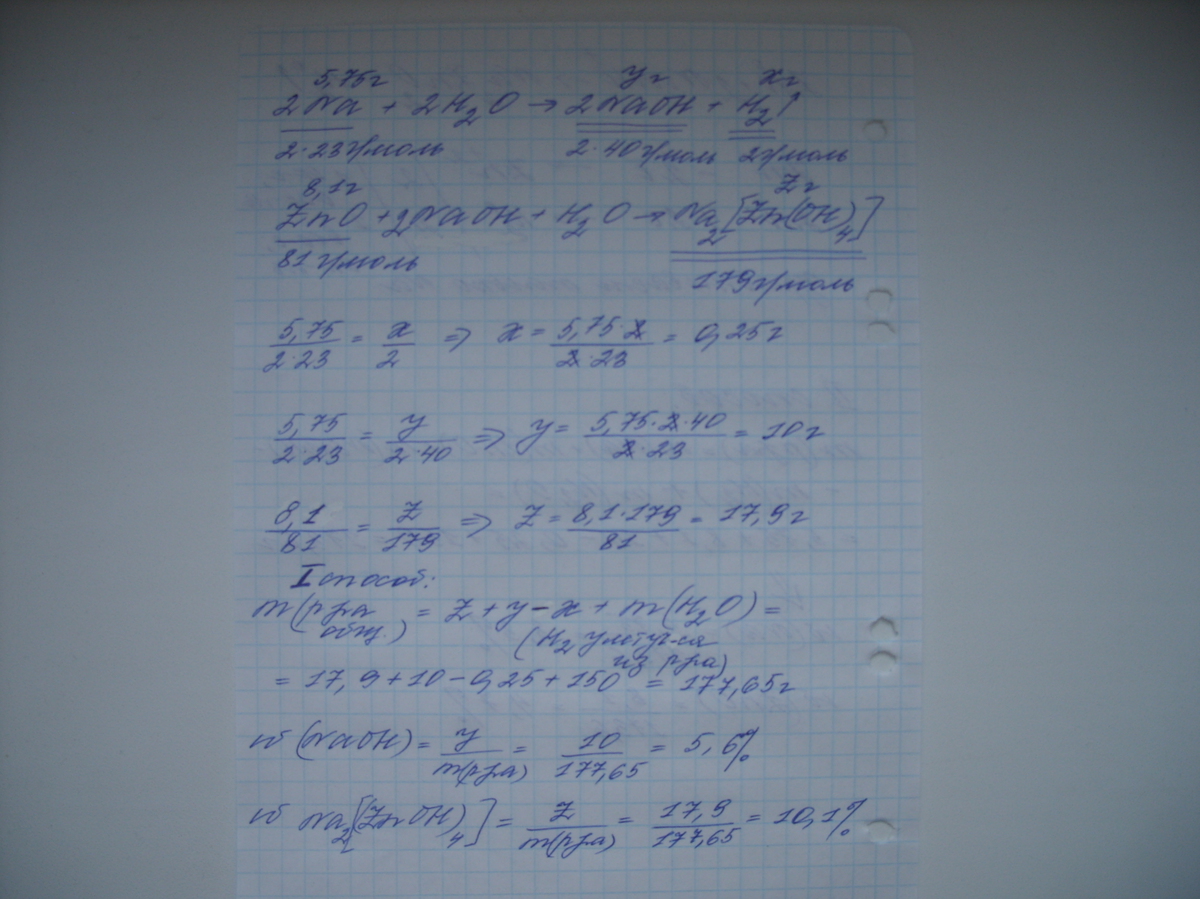 5,75г yг xг
2Na + 2H₂O → 2NaOH + H₂↑
2·23г/моль 2·40г/моль 2г/моль
8,1г Zг
ZnO + 2NaOH + H₂O → Na₂[Zn(OH)₄]
81г/моль 179г/моль
5,75/2·23 = x/2 => x = 5,75·2/2·23 = 0,25г
5,75/2·23 = y/2·40 => y = 5,75·2·40/2·23 = 10г
8,1/81 = Z/179 => Z = 8,1·179/81 = 17,9г
I способ:
m(р-ра общ.) = Z + y - x + m(H₂O) =
(H₂ улетуч-ся из р-ра)
= 17,9 + 10 - 0,25 + 150 = 177,65г
w(NaOH) = y/m(р-ра) = 10/177,65 = 5,6%
w Na₂[(ZnOH)₄] = Z/m(р-ра) = 17,9/177,65 = 10,1%